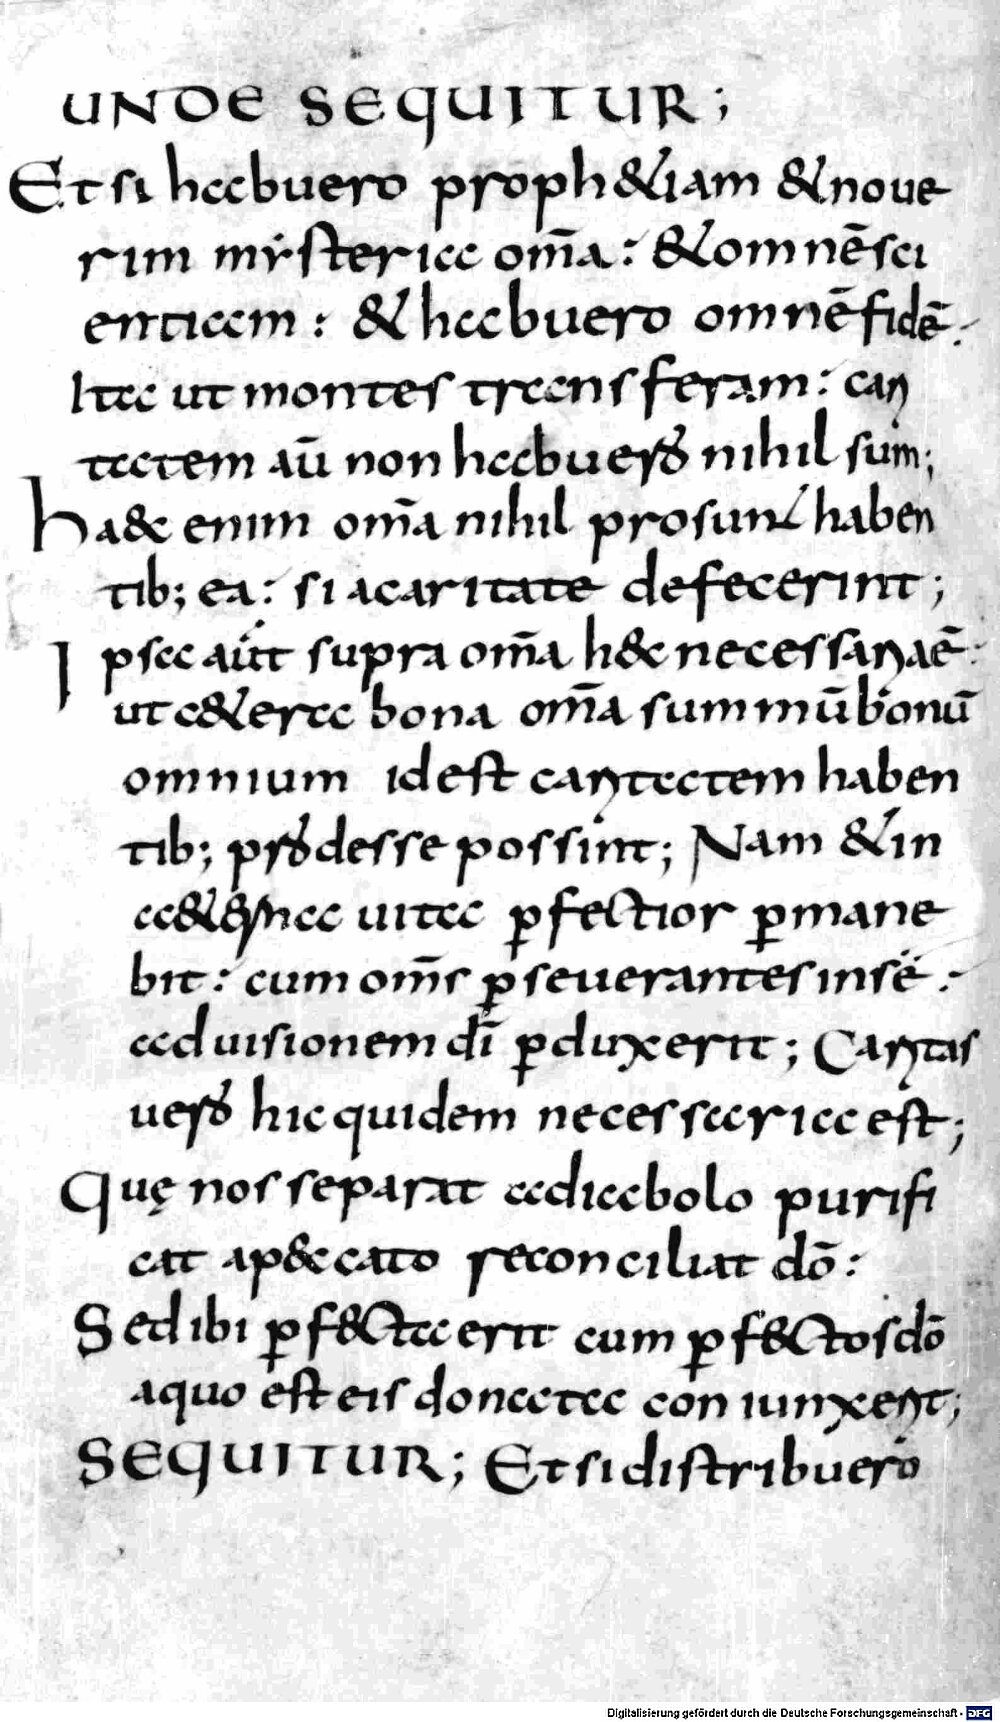 UNDE SEQUITUR;
Et si habuero proph&iam & noue
rim mysteria om̄a: & omnē sci
entiam: & habuero omnē fidē.
Ita ut montes transferam: cari
tatem aū non habuero nihil sum;
ha&c enim om̄a nihil prosunt haben
tib; ea: si a caritate defecerint;
Ipsa aūt supra om̄a h&c necessariaē:
ut c&era bona om̄a summū bonū
omnium id est caritatem haben
tib; prodesse possint; Nam & in
a&erna uita p̱fectior p̱mane
bit: cum om̄s p̱seuerantes in sē:
ad uisionem dī p̱duxerit; Caritas
uero hic quidem necessaria est;
Quę nos separat a diabolo purifi
cat a p&ccato reconciliat dō:
Sed ibi p̱f&cta erit cum p̱f&ctos dō
a quo est eis donata coniunxerit;
SEQUITUR; Et si distribuero
Digitalisierung gefördert durch die Deutsche Forschungsgemeinschaft - DFG